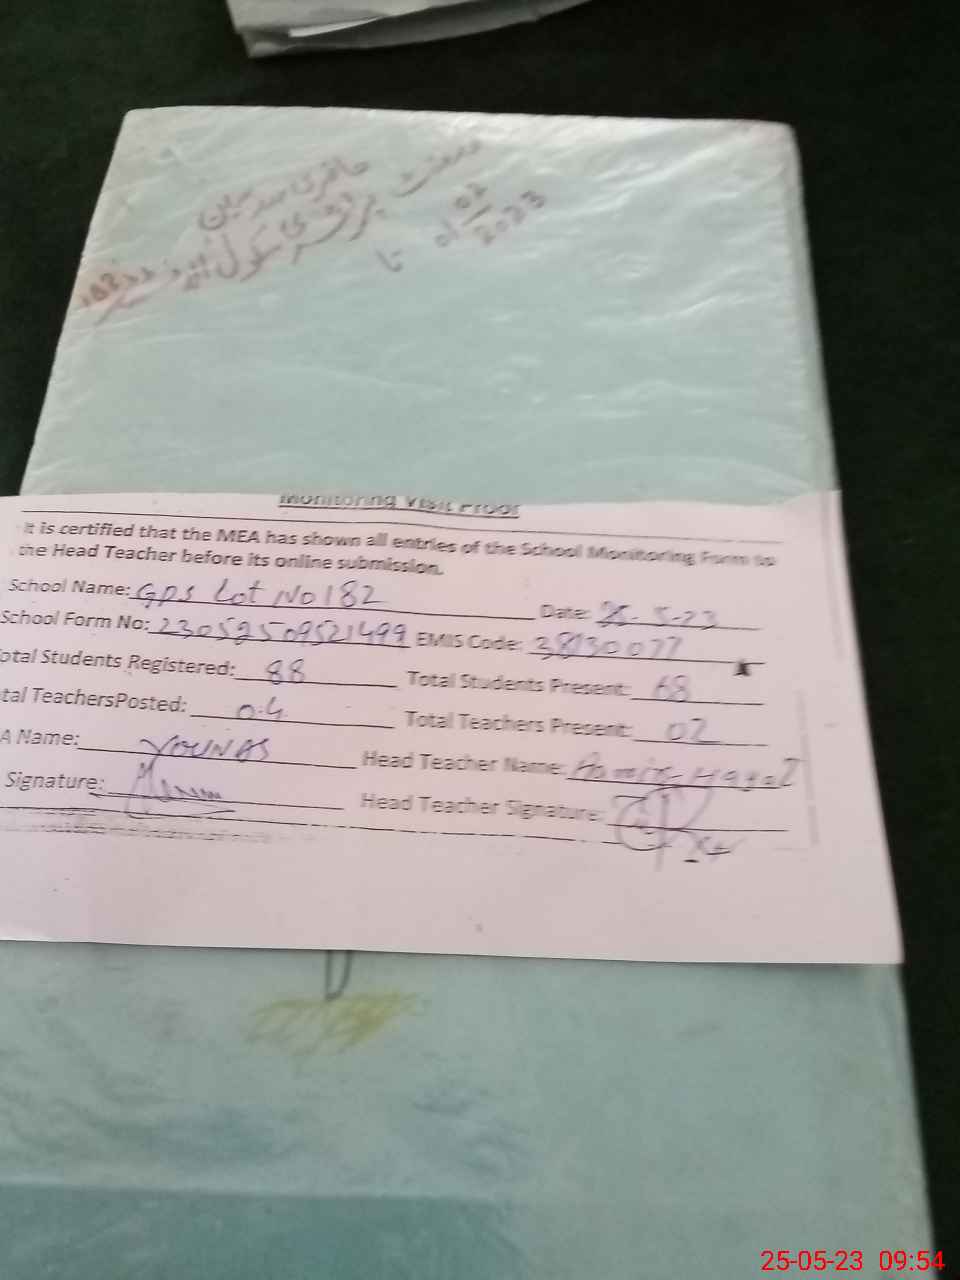 حاضری مدرسین
پرائمری سکول
01 02
2023
تا
Monitoring Visit Proof
It is certified that the MEA has shown all entries of the School Monitoring Form to
the Head Teacher before its online submission.
School Name: GPS Lot No 182 Date: 25-5-23
School Form No: 23052509521499 EMIS Code: 38130077
otal Students Registered: 88 Total Students Present: 68
tal TeachersPosted: 04 Total Teachers Present: 02
A Name: YOUNAS Head Teacher Name:
Signature: Head Teacher Signature:
25-05-23 09:54